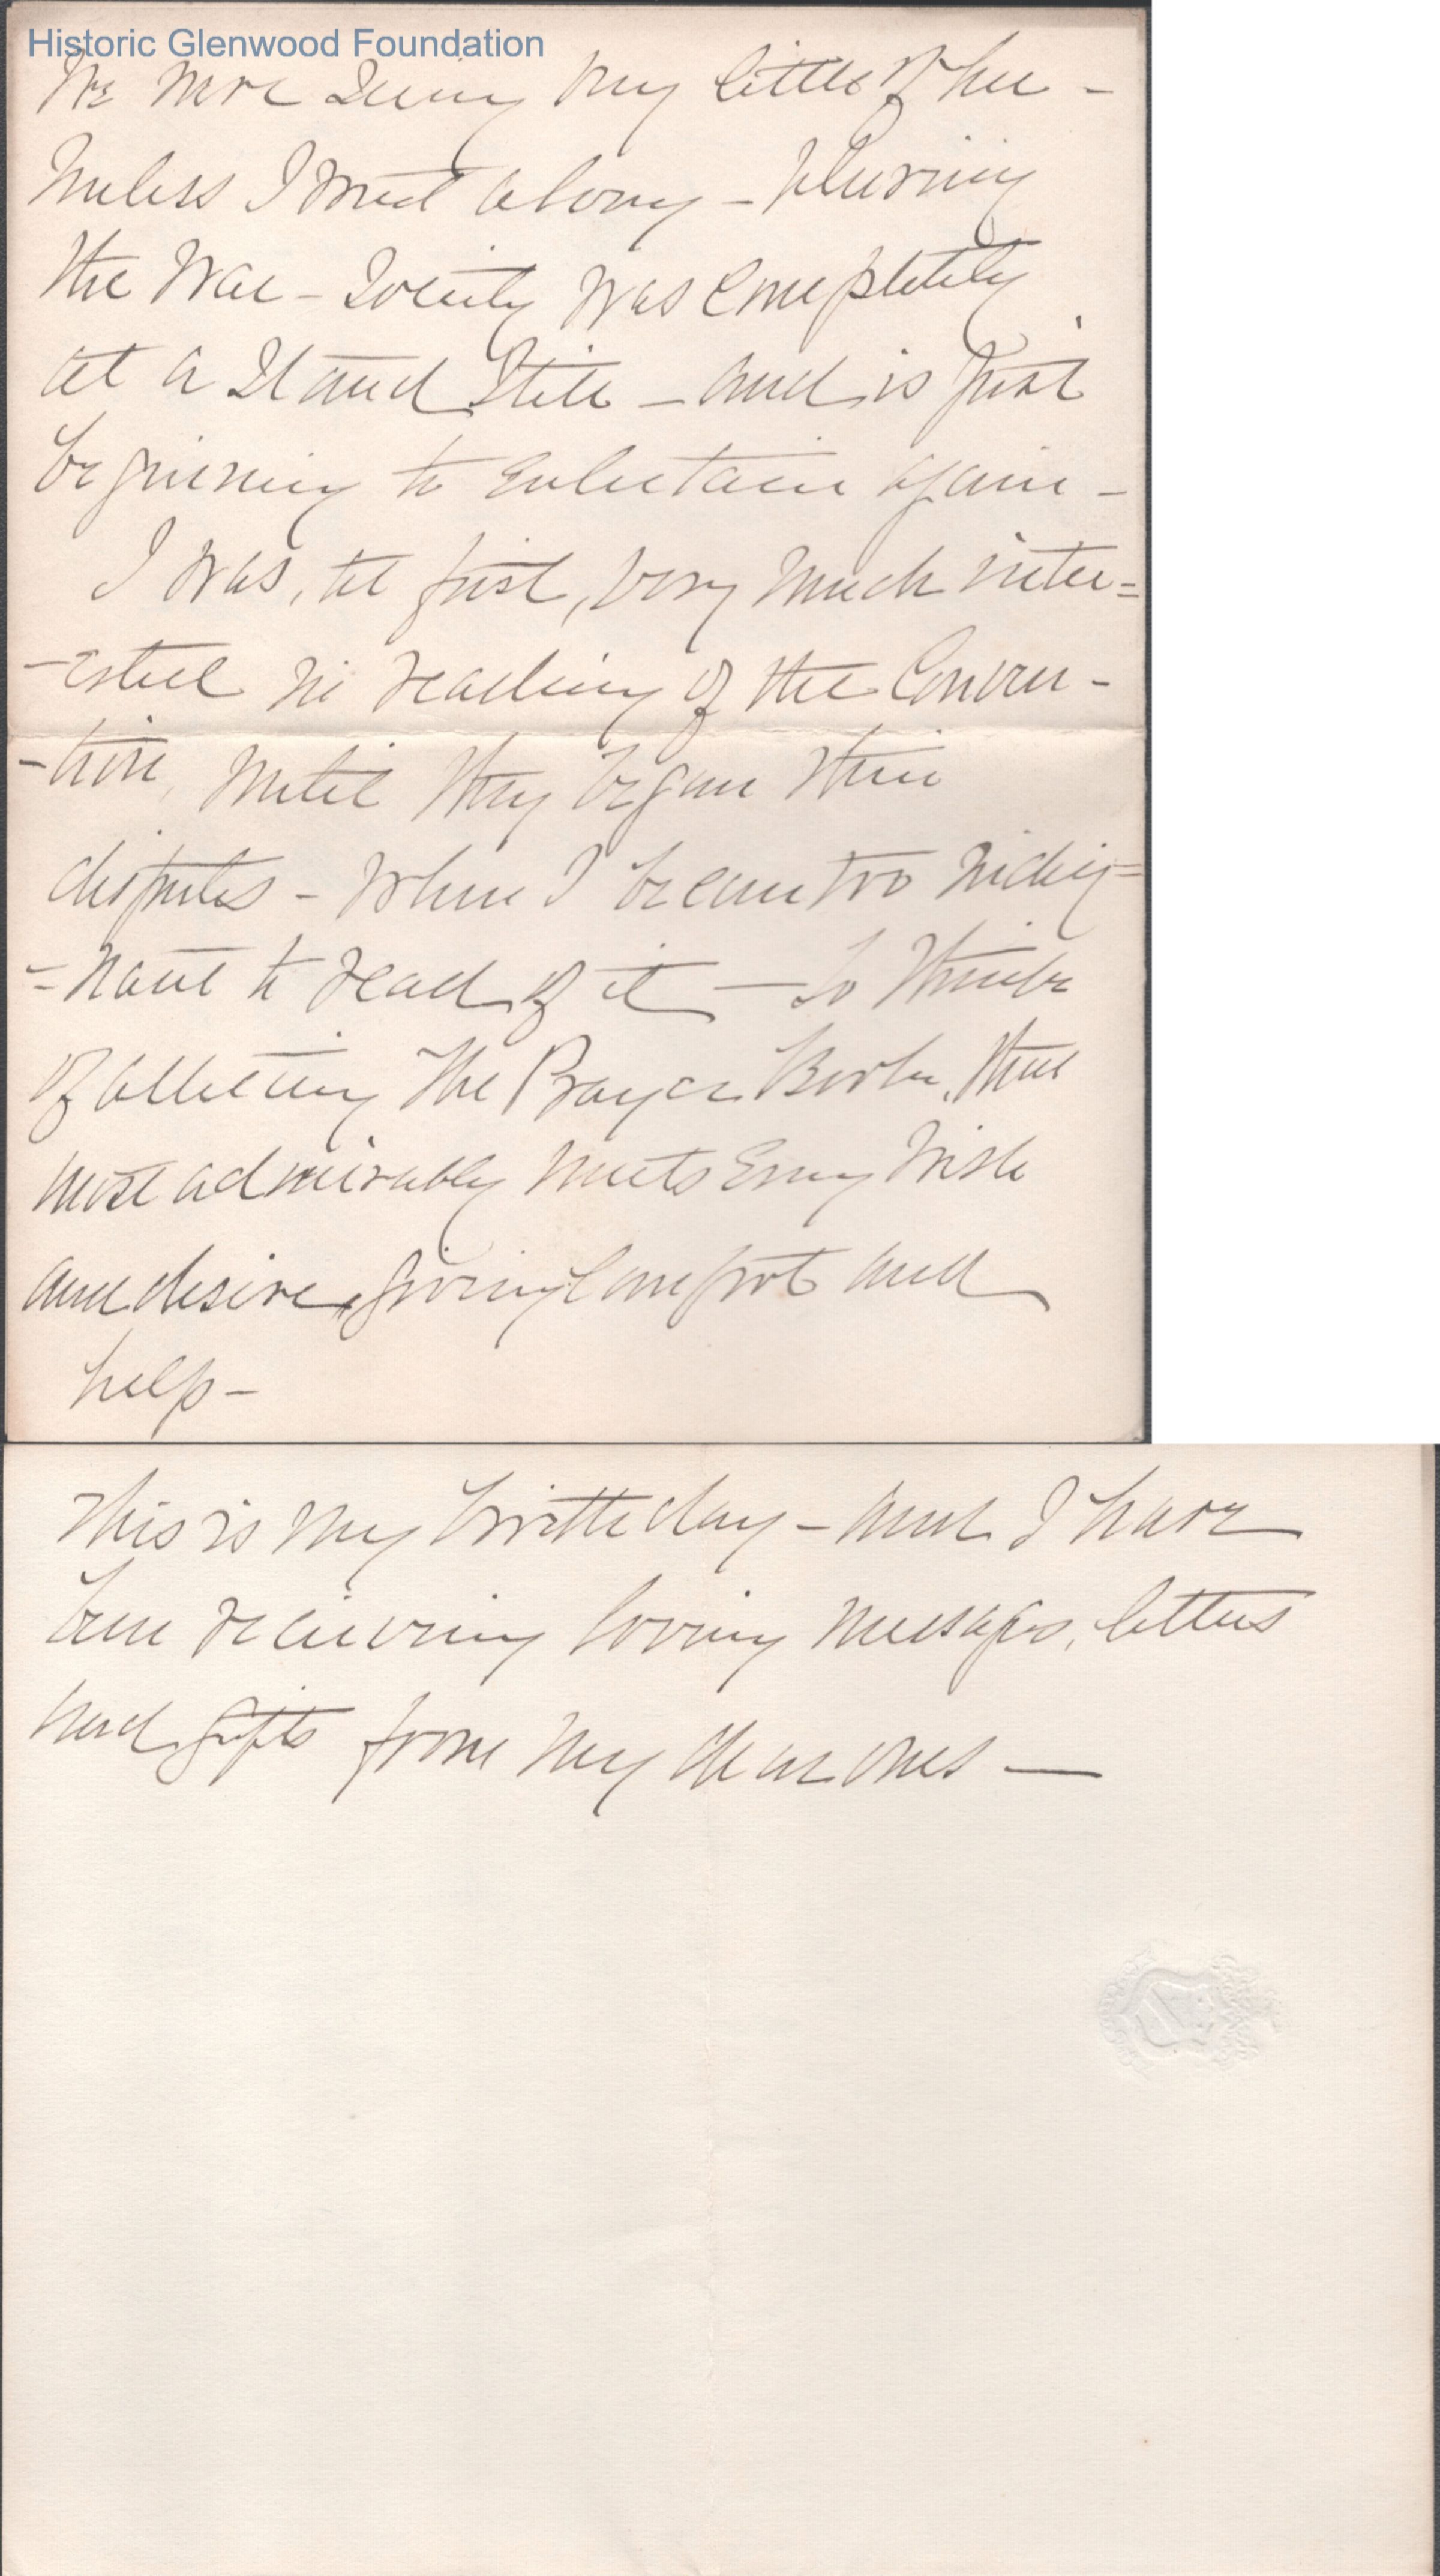 Historic Glenwood Foundation
We were seeing very little of her -
Unless I went along - During
the War - Society was completely
at a Stand Still - and is just
beginning to entertain again -
I was, at first, very much inter=
-ested in reading of the Conven-
-tion, until they began their
disputes - when I became too indig=
=nant to read of it - to think
of altering the Prayer Book, that
most admirably meets every wish
and desire, giving comfort and
help -
This is my birthday - and I have
been receiving loving messages, letters
and gifts from my dear ones —